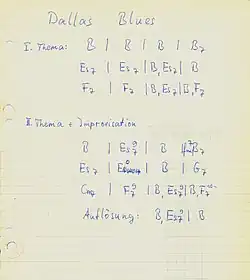 Dallas Blues
I. Thema: B | B | B | B7
Es7 | Es7 | B, Es7 | B
F7 | F7 | B, Es7 | B, F7
II. Thema + Improvisation
B | Es79 | B | B7
Es7 | E0 | B | G7
Cm7 | F79 | B, Es79 | B, F7
Auflösung: B, Es79 | B